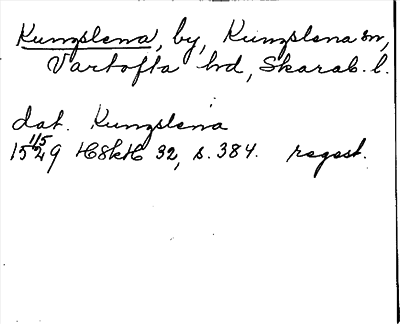 Kungslena, by, Kungslena sn,
Vartofta hd, Skarab. l.
dat. Kungslena
15 11/5 29 HSkH 32, s. 384. regest.